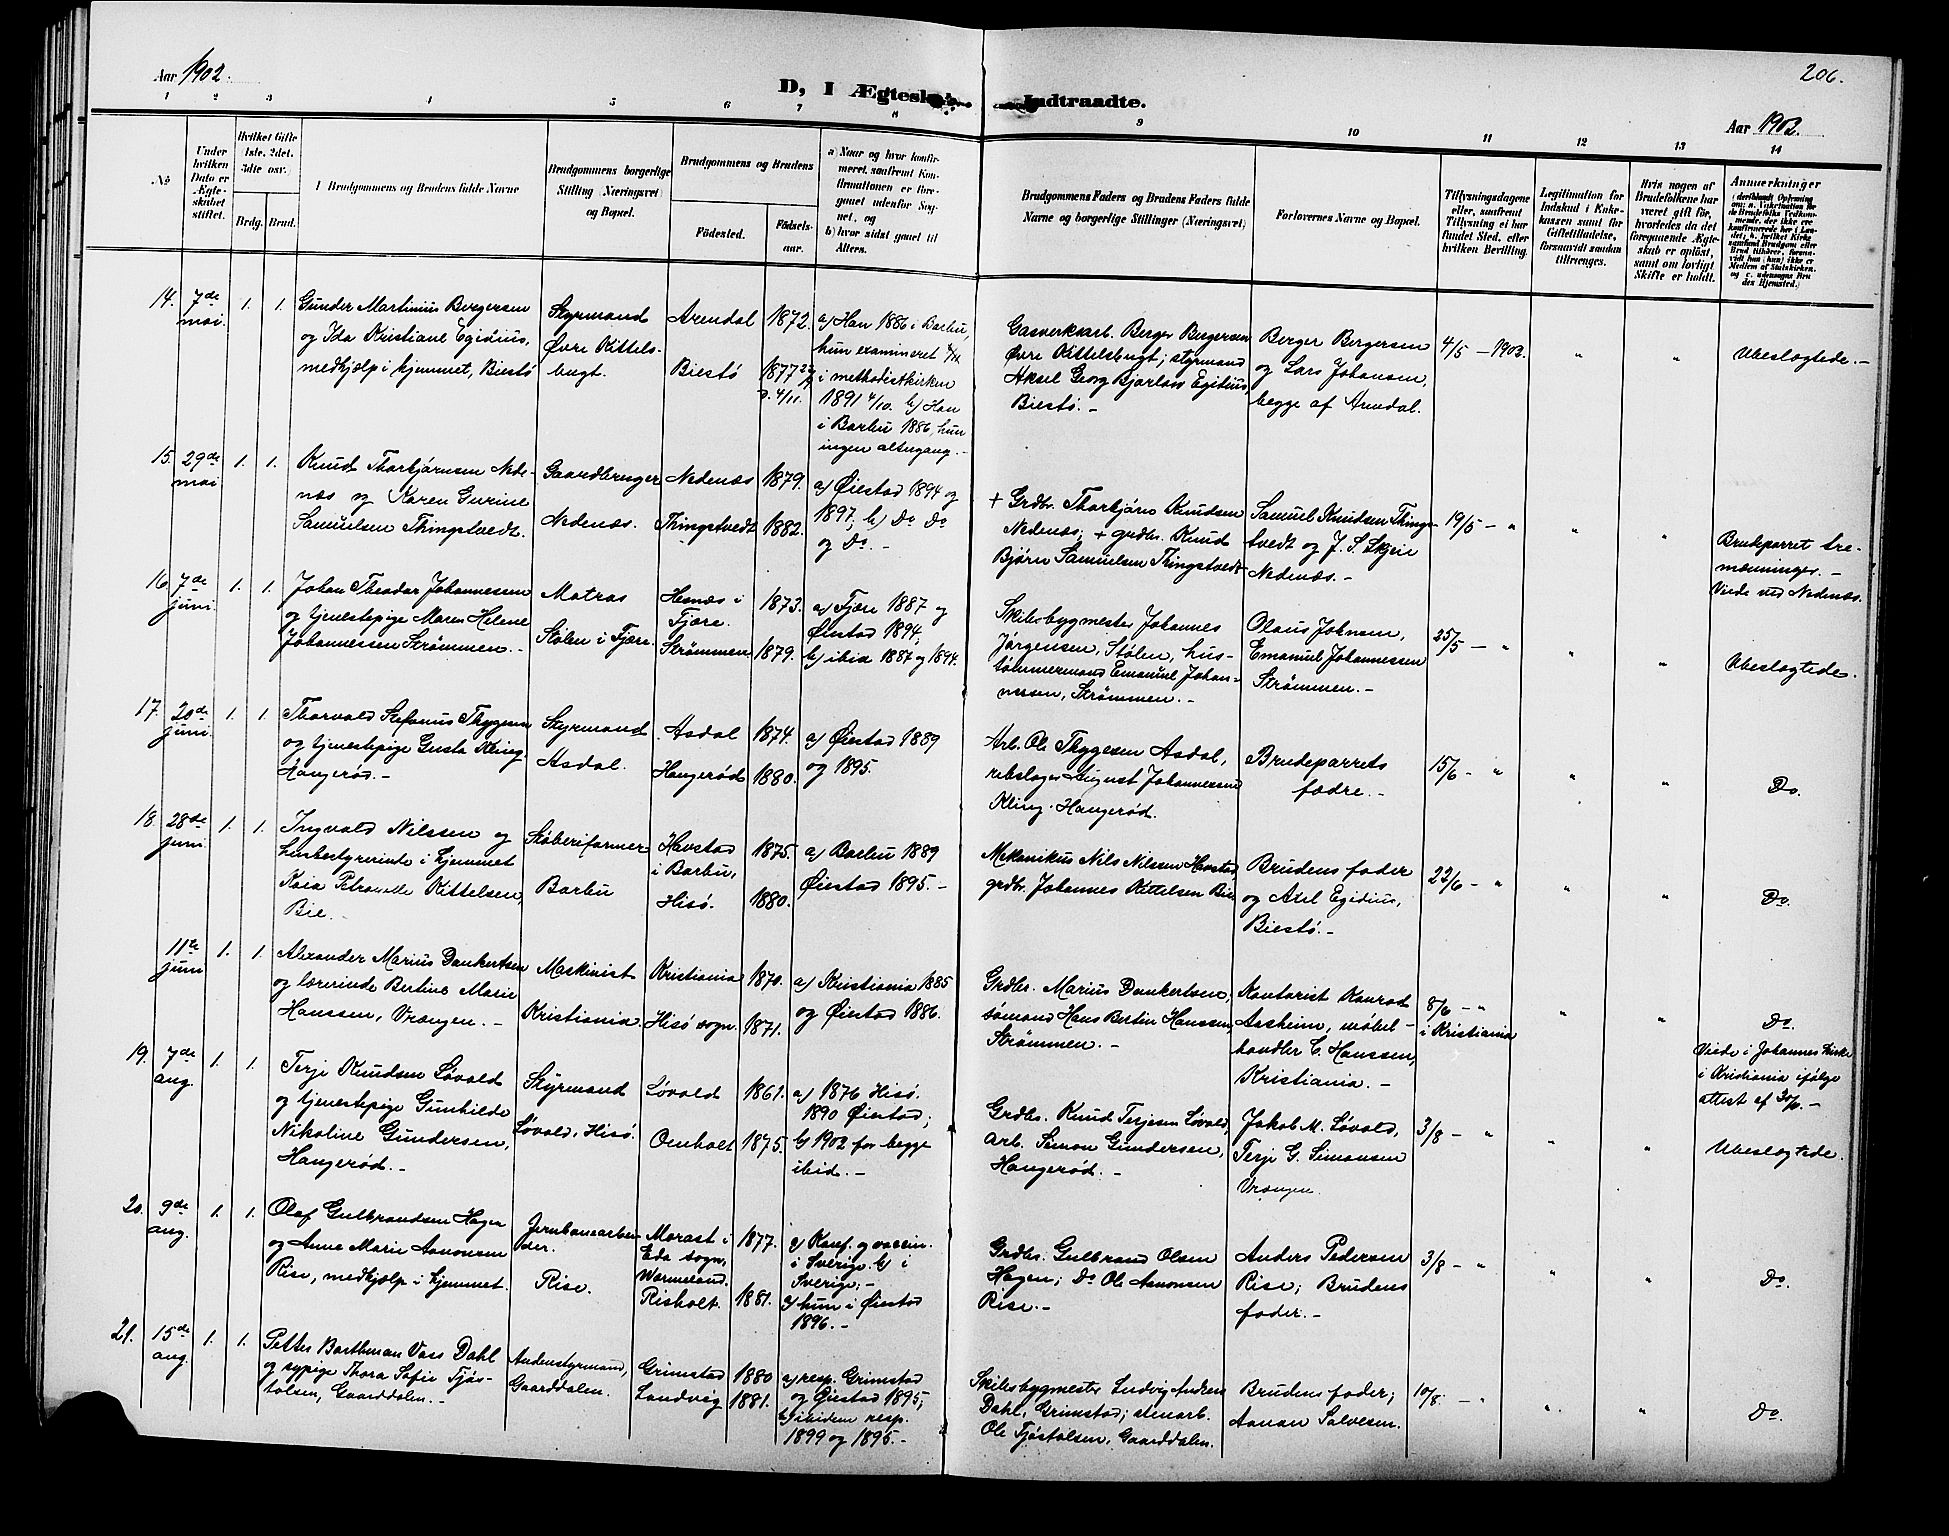 Aar 1902.
206.
D, I Ægtesk
Indtraadte.
Aar 1902.
1 2 3 4 5 6 7 8 9 10 11 12 13 14
No
Under hvilken Dato er Ægteskabet stiftet.
Hvilket Gifte (1ste, 2det, 3die osv.)
Brdg. Brud.
Brudgommens og Brudens fulde Navne
Brudgommens borgerlige Stilling (Næringsvei) og Bopæl.
Brudgommens og Brudens
Fødested.
Fødselsaar.
a) Naar og hvor konfirmeret, samt
b) hvor sidst gaaet til Alters.
Brudgommens Faders og Brudens Faders fulde Navne og borgerlige Stillinger (Næringsvei)
Forlovernes Navne og Bopæl.
Tillysningsdagene eller, saafremt Tillysning ei har fundet Sted, efter hvilken Bevilling.
Legitimation for Indskud i Enkekassen samt for Giftetilladelse, forsaavidt saadan tiltrænges.
Hvis nogen af Brudefolkene har været gift før, hvorledes da det foregaaende Ægteskab er opløst, samt om lovligt Skifte er holdt.
Anmærkninger
14. 7de mai. 1. 1.
Gunder Martinius Bergersen
og Ida Kristiane Egidius,
medhjælp i hjemmet, Biestø
Styrmand
Øvre Kittels-
bugt.
Arendal 1872.
Biestø 1877
a) Han 1886 i Barbu,
hun examineret
i methodistkirken
1891 4/10. b) Han
i Barbu 1886, hun
ingen altergang.-
Gasverksarb. Berger Bergersen
Øvre Kittelsbugt; styrmand
Aksel Georg Bjarløv Egidius,
Biestø.-
Berger Bergersen
og Lars Johansen,
begge af Arendal.
4/5 - 1902. " "
Ubeslægtede.-
15. 29de mai 1. 1.
Knud Thorbjørnsen Nede-
næs og Karen Gurine
Samuelsen Thingstvedt.
Gaardbruger
Nedenæs.
Nedenæs 1879.
Thingstvedt 1882.
a) Øiestad 1894 og
1897, b) Do Do
og Do.-
+ Grdbr. Thorbjørn Knudsen
Nedenæs; + grdbr. Knud
Bjørn Samuelsen Thingstvedt
Samuel Knudsen Things-
tvedt og J. S. Skjeie
Nedenæs.-
19/5 - " " "
Brudeparret tre-
mænninger.-
Viede ved Nedenæs.
16. 7de juni. 1. 1.
Johan Theodor Johannessen
og tjenestepige Maren Helene
Johannessen Strømmen.-
Matros
Stølen i Fjære.
Hesnæs i
Fjære. 1873.
Strømmen 1879.
a) Fjære 1887 og
Øiestad 1894,
b) ibid 1887 og 1894.
Skibsbygmester Johannes
Jørgensen, Stølen, hus-
tømmermand Emanuel Johan-
nessen, Strømmen.-
Olaus Johnsen,
Emanuel Johannessen
Strømmen.-
25/5 - " " "
Ubeslægtede.
17. 20de juni. 1. 1.
Thorvald Stefanus Thygesen
og tjenestepige Gusta Kling
Haugerød.-
Styrmand
Asdal.
Asdal 1874.
Haugerød 1880.
a) Øiestad 1889
og 1895.
Arb. Ole Thygesen Asdal,
rebslager August Johannessen
Kling. Haugerød.
Brudeparrets
fædre.-
15/6 - " " "
Do.
18. 28de juni. 1. 1.
Ingvald Nilssen og
husbestyrerinde i hjemmet
Kaia Petronelle Kittelsen
Bie.-
Støberiformer
Barbu
Havstad
i Barbu, 1875.
Hisø. 1880.
a) Barbu 1889
Øiestad 1895.-
Mekanikus Nils Nilssen Havstad,
grdbr. Johannes Kittelsen Bie
Brudens fader
og Axel Egidius,
Biestø.-
22/6 - " " "
Do.
11te juni 1. 1.
Alexander Marius Dankertsen
og lærerinde Bertine Marie
Hanssen, Vrængen.-
Maskinist
Kristiania.
Kristiania 1870.
Hisø sogn. 1871.
a) Kristiania 1885
og Øiestad 1886.
Grdbr. Marius Dankertsen,
sømand Hans Bertin Hanssen,
Strømmen.-
Kontorist Konrad
Aasheim, møbel-
handler C. Hanssen,
Kristiania.-
8/6 - "
i Kristiania " "
Do.
Viede i Johannes Kirke
i Kristiania ifølge
attest af 30/6.-
19. 7de aug. 1. 1.
Terje Knudsen Løvold
og tjenestepige Gunhilde
Nikoline Gundersen,
Haugerød.-
Styrmand
Løvold, Hisø.
Løvold 1861.
Omholt 1875.
a) 1876 Hisø.
1890 Øiestad;
b) 1902 for begge
ibid.-
Grdbr. Knud Terjesen Løvold,
arb. Simon Gundersen,
Haugerød.-
Jakob M. Løvold,
Terje G. Simonsen
Vrængen.
3/8 - " " "
Ubeslægtede.
20. 9de aug. 1. 1.
Olaf Gulbrandsen Hagen
og Anne Marie Aanonsen
Rise, medhjælp i hjemmet.
Jernbanearbei-
der.
Rise.
Morast i
Eda sogn,
Wærmeland. 1877.
Risholt. 1881.
a) Konf. og vaccin.
i Sverige. b) i
Sverige;-
a) hun i Øiestad
1896.-
Grdbr. Gulbrand Olsen
Hagen; Do Ole Aanonsen
Rise.-
Anders Pedersen
Rise; Brudens
fader.-
3/8 - " " "
Do.
21. 15de aug. 1. 1.
Petter Barthman Vass Dahl
og sypige Thora Sofie Tjøs-
tolsen, Gaarddalen.-
Andenstyrmand,
Gaarddalen.
Grimstad 1880
Landvig 1881.
a) resp. Grimstad
og Øiestad 1895;
b) ibidem resp.
1899 og 1895.-
Skibsbygmester Ludvig Andreas
Dahl, Grimstad; stenarb.
Ole Tjøstolsen, Gaarddalen.
Brudens fader;
Aanon Salvesen.
10/8. - " " "
Do.